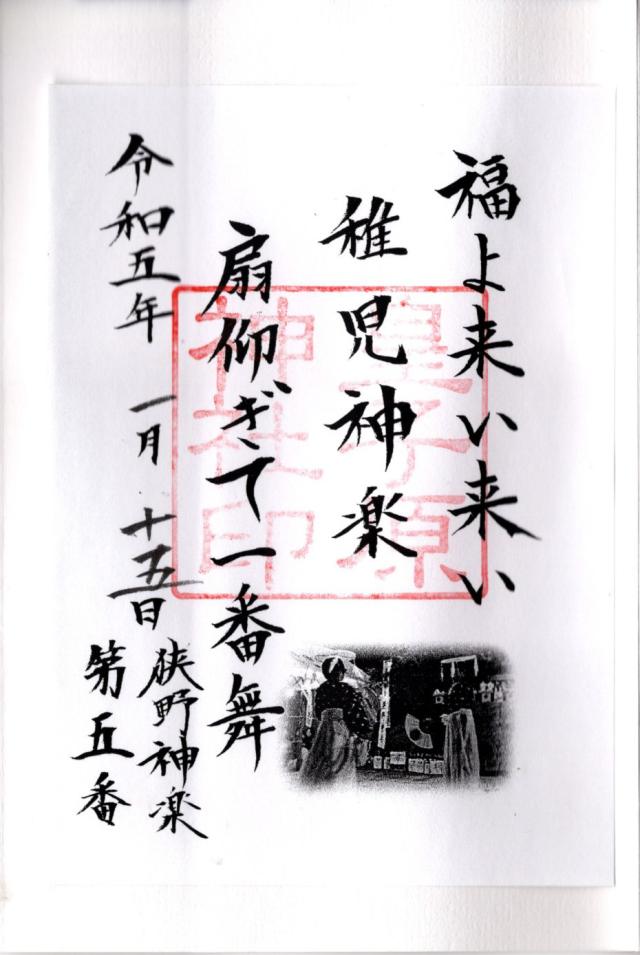 福よ来い来い
稚児神楽
扇仰ぎて一番舞
令和五年 一月 十五日
狭野神楽
第五番
皇子原
神社印